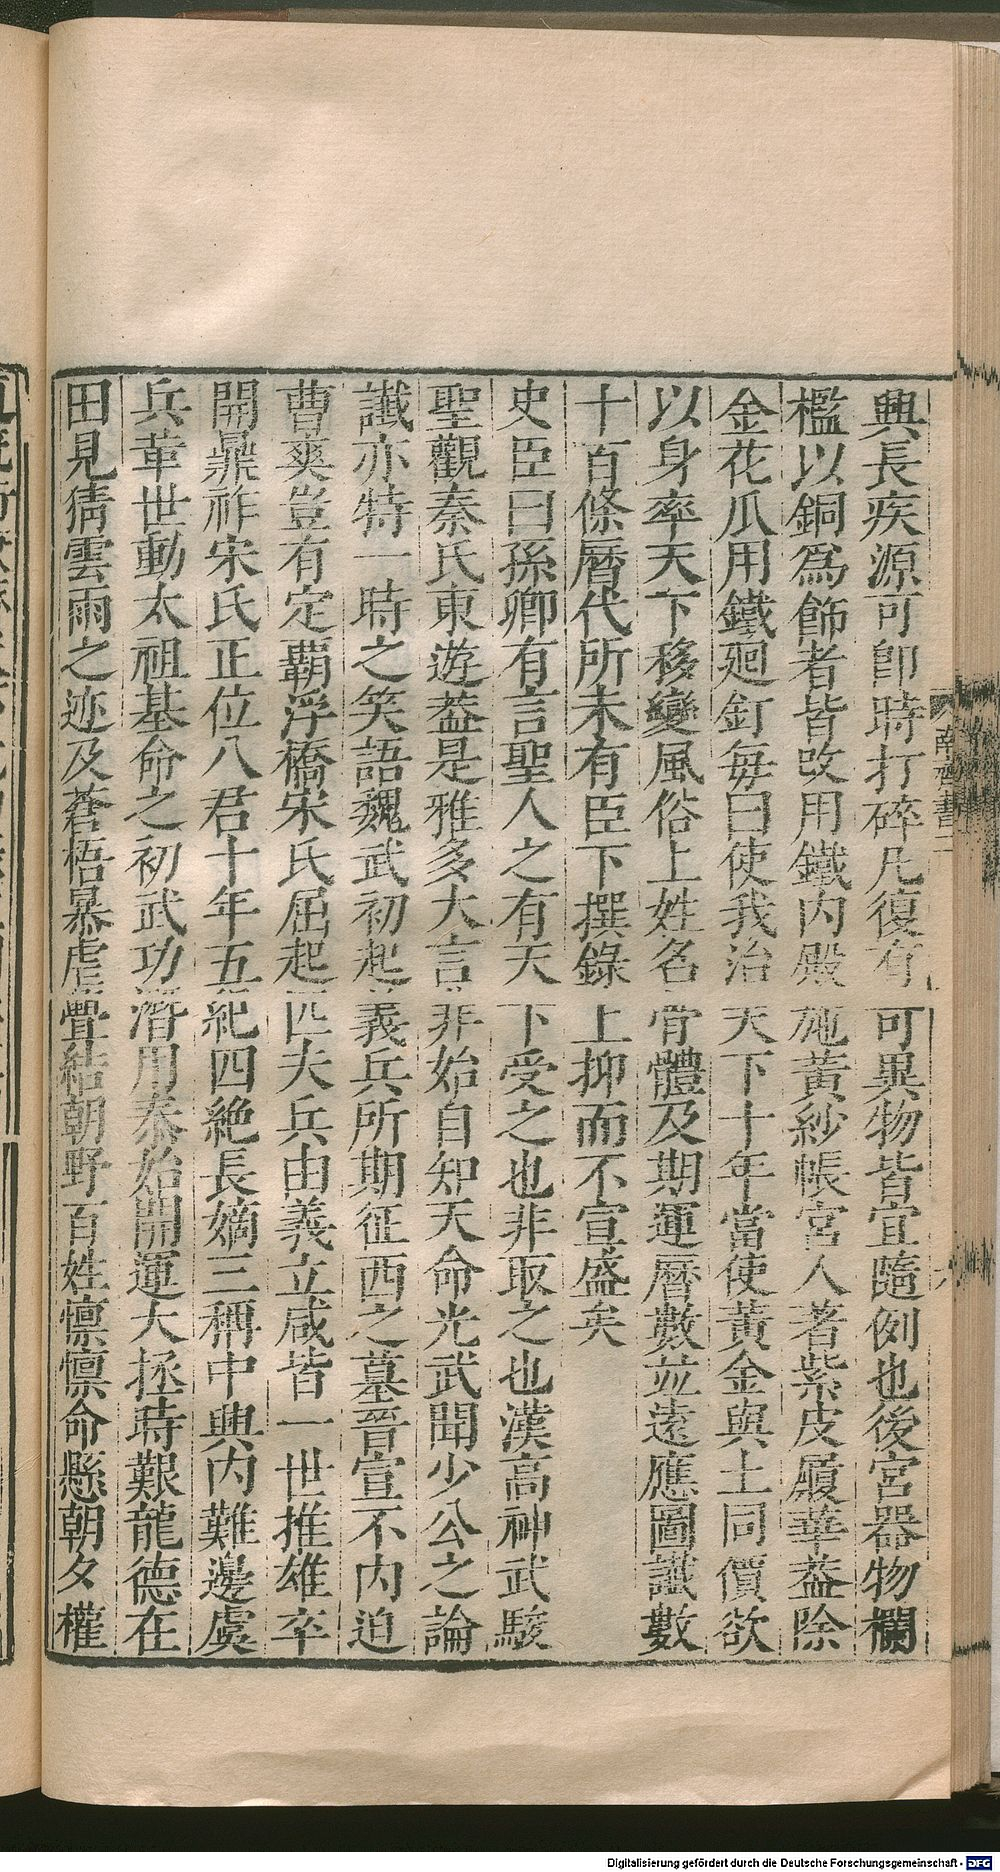 興長疾源可卽時打碎凡復有可異物皆宜隨例也後宮器物欄
檻以銅爲飾者皆改用鐵内殿施黃紗帳宮人著紫皮履華葢除
金花瓜用鐵廻釘毎曰使我治天下十年當使黃金與土同價欲
以身率天下移變風俗上姓名骨體及期運曆數並遠應圖讖數
十百條曆代所未有臣下撰錄上抑而不宣盛矣
史臣曰孫卿有言聖人之有天下受之也非取之也漢高神武駿
聖觀秦氏東遊葢是雅多大言非始自知天命光武聞少公之論
讖亦特一時之笑語魏武初起義兵所期征西之墓晉宣不内迫
曹爽豈有定覇浮橋宋氏屈起匹夫兵由義立咸皆一世推雄卒
開鼎祚宋氏正位八君十年五紀四絶長嫡三稱中興内難邊虞
兵革世動太祖基命之初武功潛用泰始開運大拯時艱龍德在
田見猜雲雨之迹及蒼梧暴虐釁結朝野百姓懍懍命懸朝夕權
南齊書二
Digitalisierung gefördert durch die Deutsche Forschungsgemeinschaft - DFG